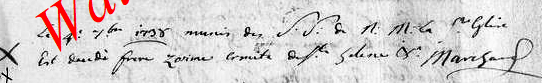 Wa
Le 4e 7bre 1738 munis des S.S. de N. M. la Ste Eglise
Est decedé frere Zozime comite de Ste helene Sr Marchand